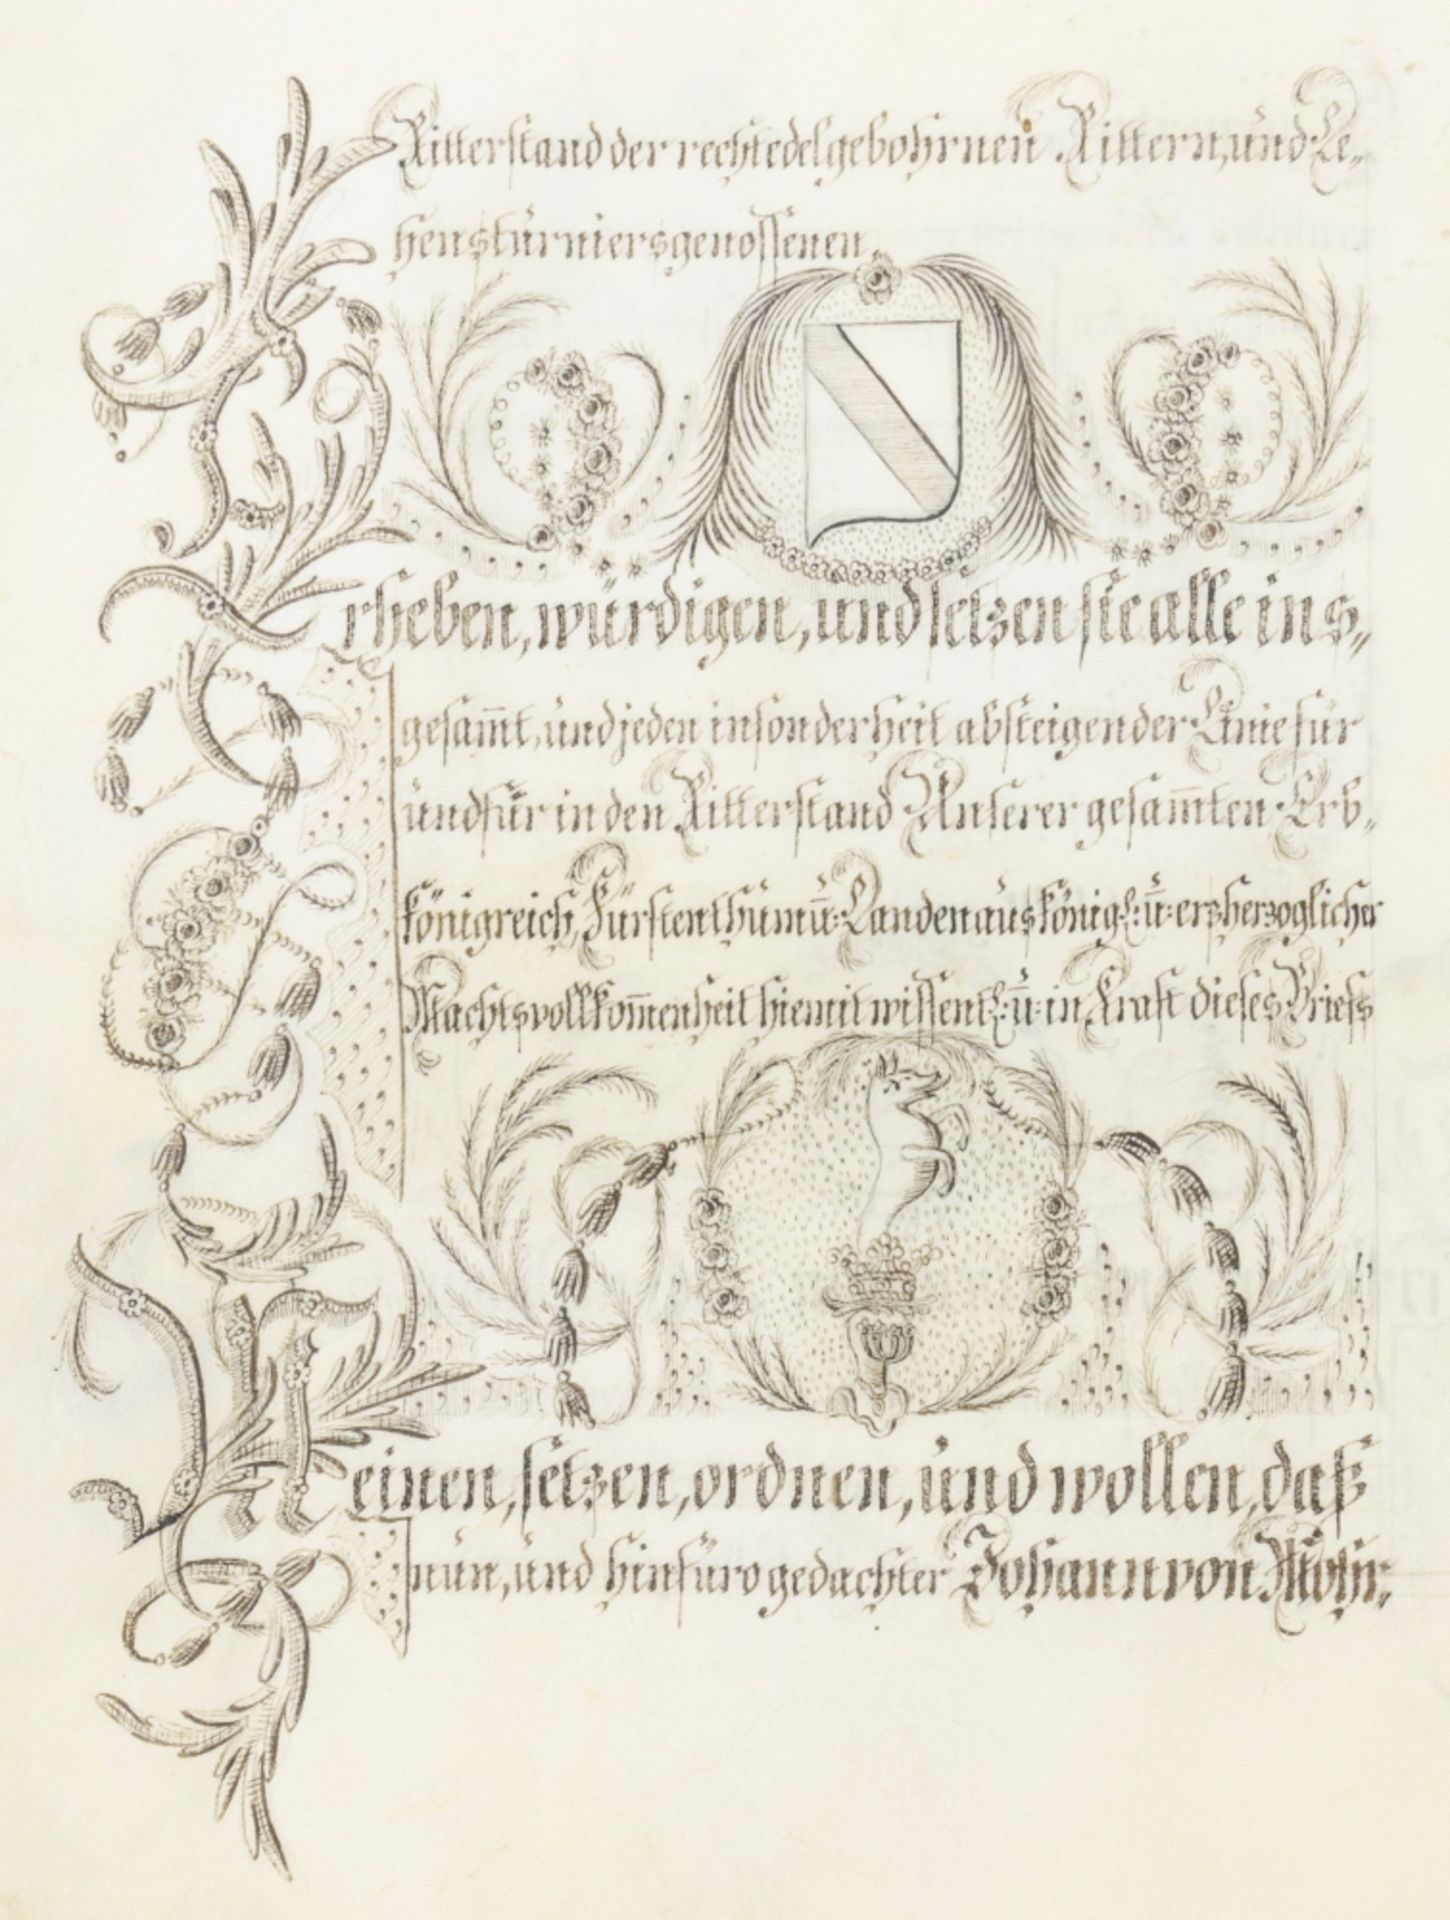 Ritterstand der rechtedelgebohrnen Rittern, und Le„
henstúrniersgenossenen
Erheben, würdigen, und setzen sie alle ins„
gesam̄t, únd jeden insonderheit absteigender Linie für
úndfúr in den Ritterstand Unserer gesam̄ten Erb„
königreich, Fürstenthúm ū: Landen aús königl: ū: erzherzoglicher
Machtsvollkom̄enheit hiemit wissentl: ū: in Kraft dieses Briefs
Meinen, setzen, ordnen, únd wollen, daß
nún, únd hinfúro gedachter Johann von Mohr„